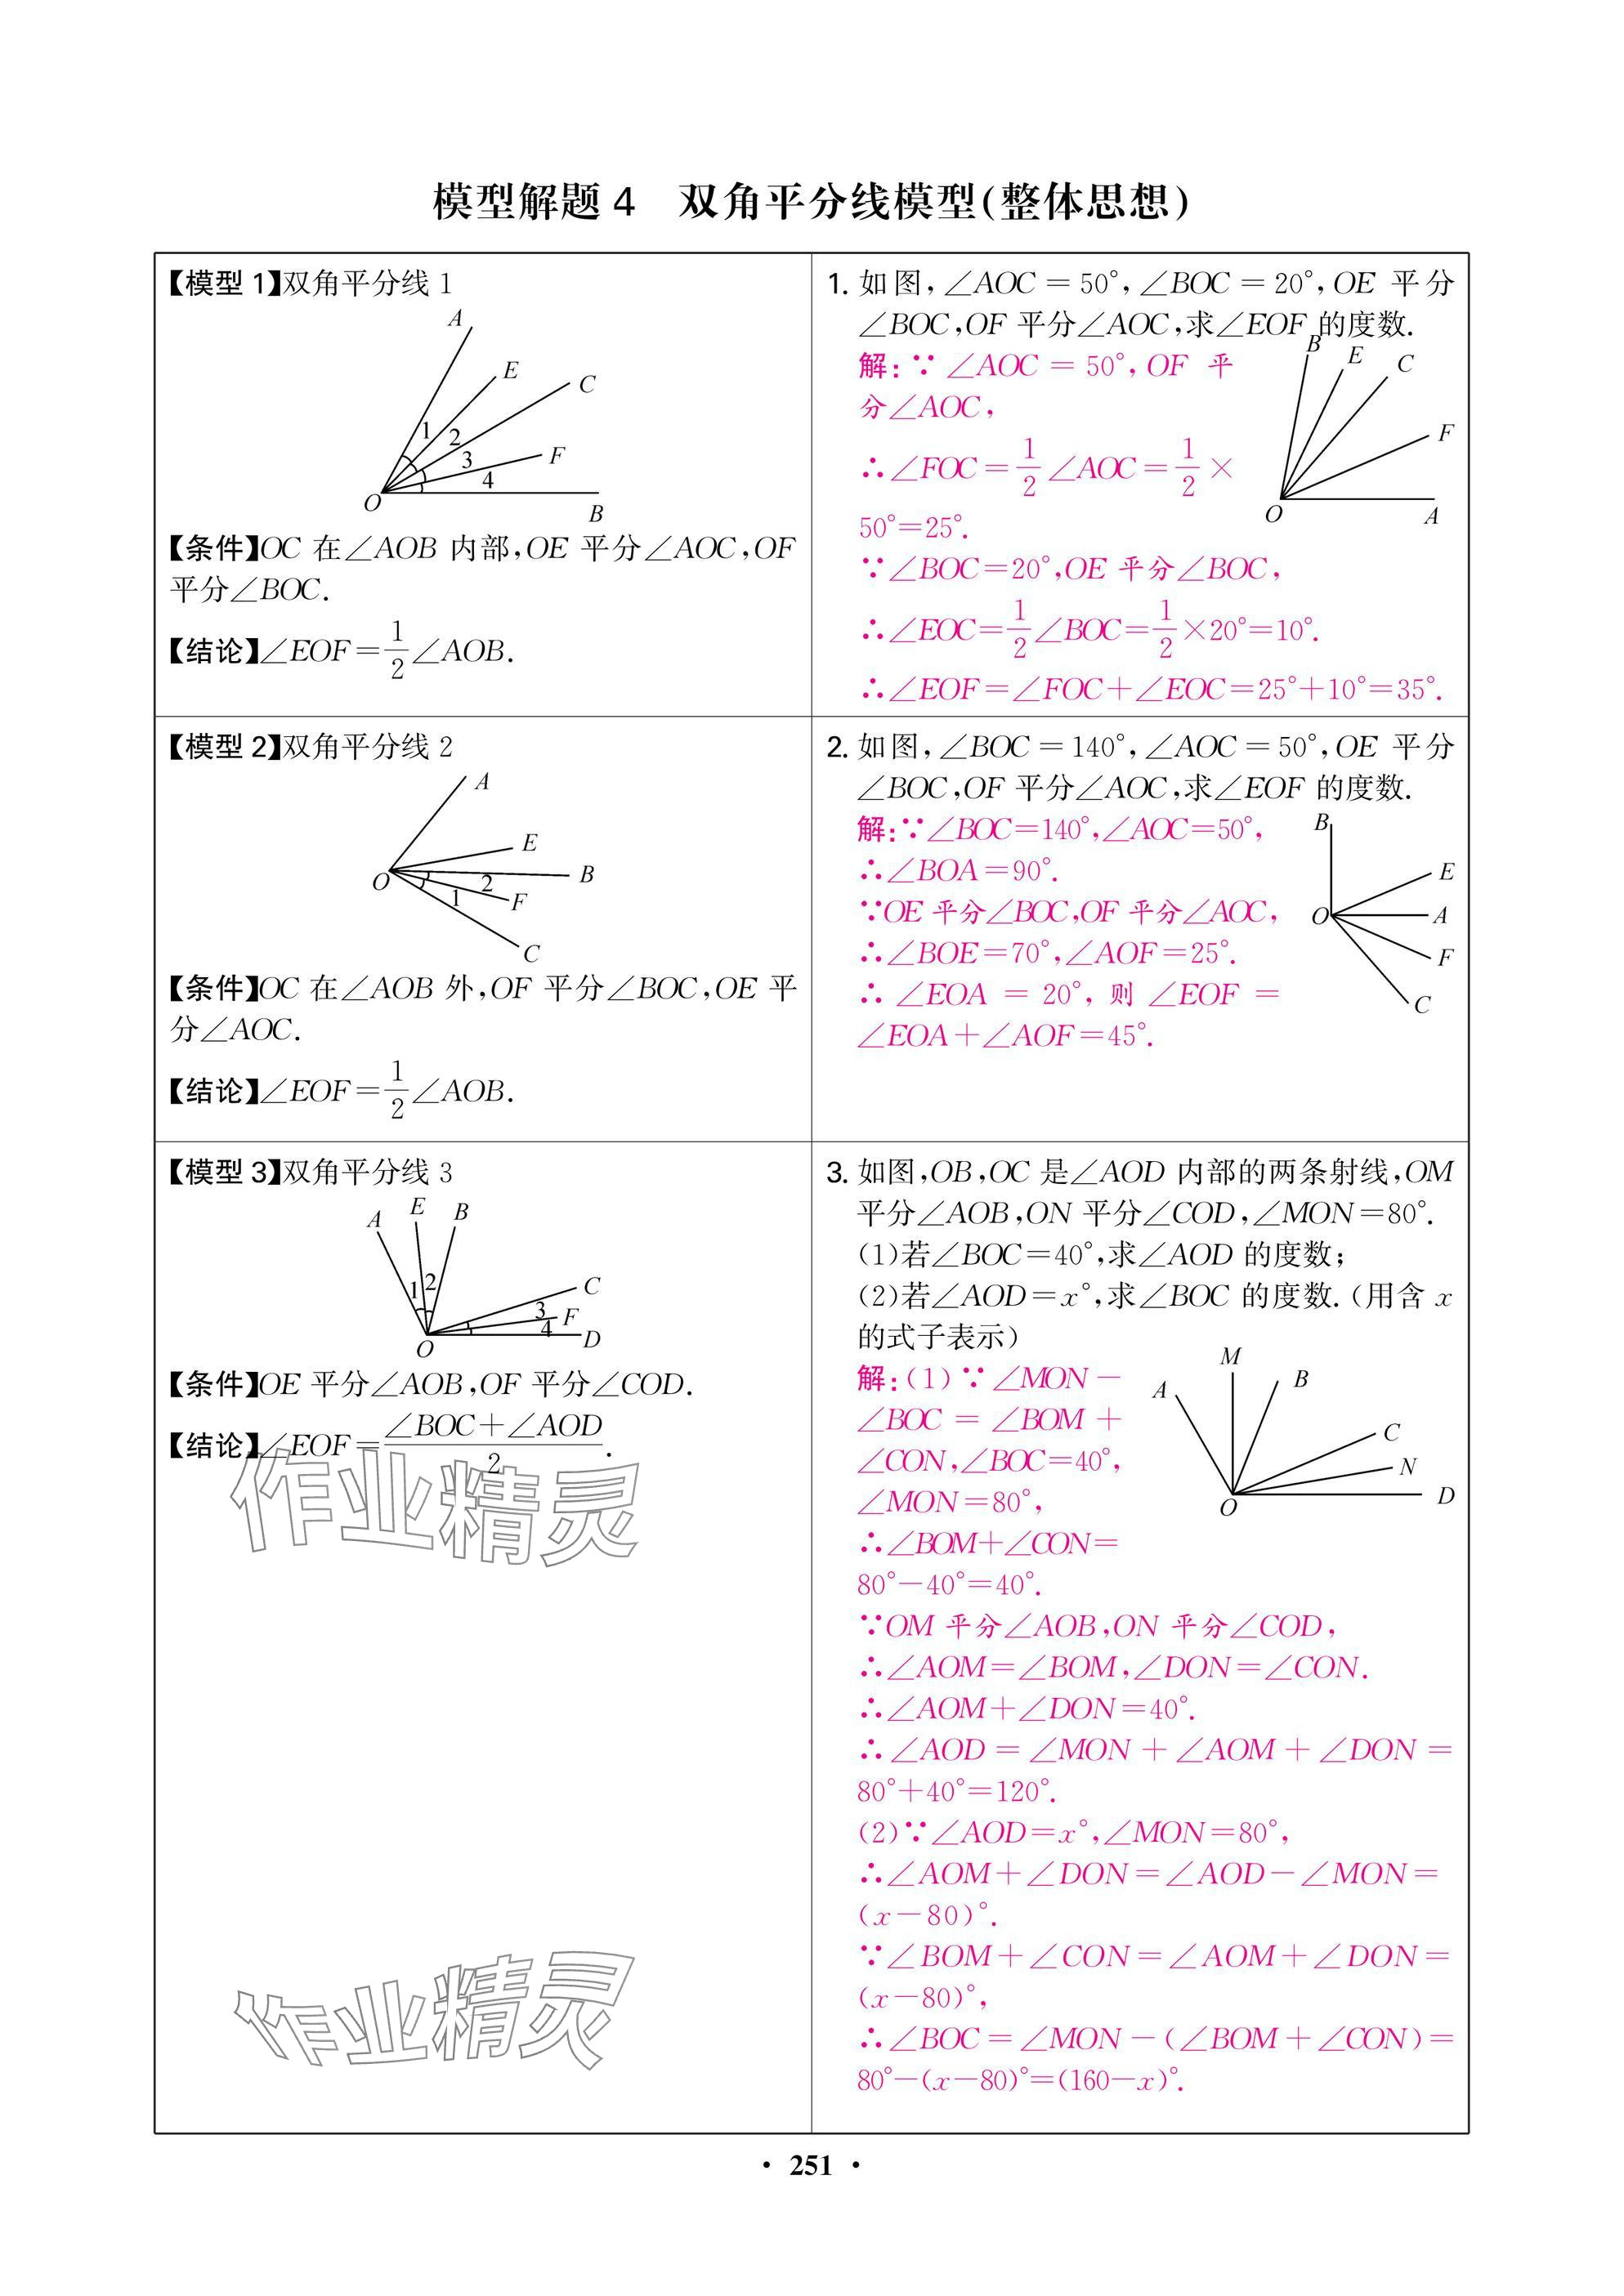 模型解题 4　双角平分线模型(整体思想)
【模型 1】双角平分线 1
A
E
C
1
2
3
F
4
O
B
【条件】OC 在∠AOB 内部,OE 平分∠AOC,OF
平分∠BOC.
【结论】∠EOF=1/2∠AOB.
1. 如图,∠AOC=50°,∠BOC=20°,OE 平分
∠BOC,OF 平分∠AOC,求∠EOF 的度数.
B
E
C
F
O
A
解:∵∠AOC=50°,OF 平
分∠AOC,
∴∠FOC=1/2∠AOC=1/2×
50°=25°.
∵∠BOC=20°,OE 平分∠BOC,
∴∠EOC=1/2∠BOC=1/2×20°=10°.
∴∠EOF=∠FOC+∠EOC=25°+10°=35°.
【模型 2】双角平分线 2
A
E
O
B
2
1
F
C
【条件】OC 在∠AOB 外,OF 平分∠BOC,OE 平
分∠AOC.
【结论】∠EOF=1/2∠AOB.
2. 如图,∠BOC=140°,∠AOC=50°,OE 平分
∠BOC,OF 平分∠AOC,求∠EOF 的度数.
B
E
O
A
F
C
解:∵∠BOC=140°,∠AOC=50°,
∴∠BOA=90°.
∵OE 平分∠BOC,OF 平分∠AOC,
∴∠BOE=70°,∠AOF=25°.
∴∠EOA=20°,则∠EOF=
∠EOA+∠AOF=45°.
【模型 3】双角平分线 3
A
E
B
1
2
C
3
F
4
D
O
【条件】OE 平分∠AOB,OF 平分∠COD.
【结论】∠EOF=(∠BOC+∠AOD)/2.
作业精灵
作业精灵
3. 如图,OB,OC 是∠AOD 内部的两条射线,OM
平分∠AOB,ON 平分∠COD,∠MON=80°.
(1)若∠BOC=40°,求∠AOD 的度数;
(2)若∠AOD=x°,求∠BOC 的度数.(用含 x
的式子表示)
M
A
B
C
N
O
D
解:(1)∵∠MON-
∠BOC=∠BOM+
∠CON,∠BOC=40°,
∠MON=80°,
∴∠BOM+∠CON=
80°-40°=40°.
∵OM 平分∠AOB,ON 平分∠COD,
∴∠AOM=∠BOM,∠DON=∠CON.
∴∠AOM+∠DON=40°.
∴∠AOD=∠MON+∠AOM+∠DON=
80°+40°=120°.
(2)∵∠AOD=x°,∠MON=80°,
∴∠AOM+∠DON=∠AOD-∠MON=
(x-80)°.
∵∠BOM+∠CON=∠AOM+∠DON=
(x-80)°,
∴∠BOC=∠MON-(∠BOM+∠CON)=
80°-(x-80)°=(160-x)°.
· 251 ·